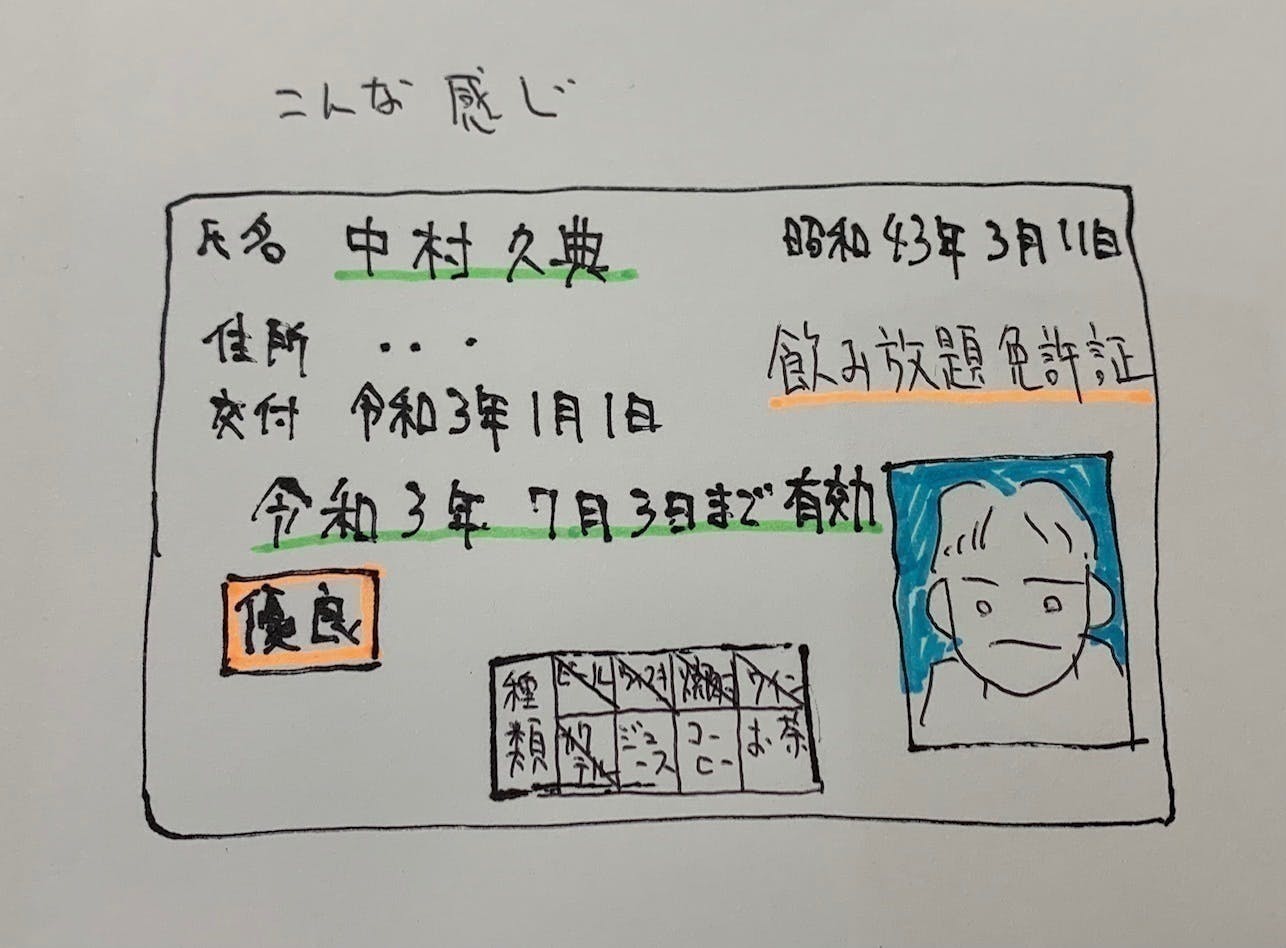 こんな感じ
氏名 中村久典 昭和43年3月11日
住所 ・・・
飲み放題免許証
交付 令和3年1月1日
令和3年7月3日まで有効
優良
種類 ビール ウイスキ 焼酎 ワイン
カクテル ジュース コーヒー お茶